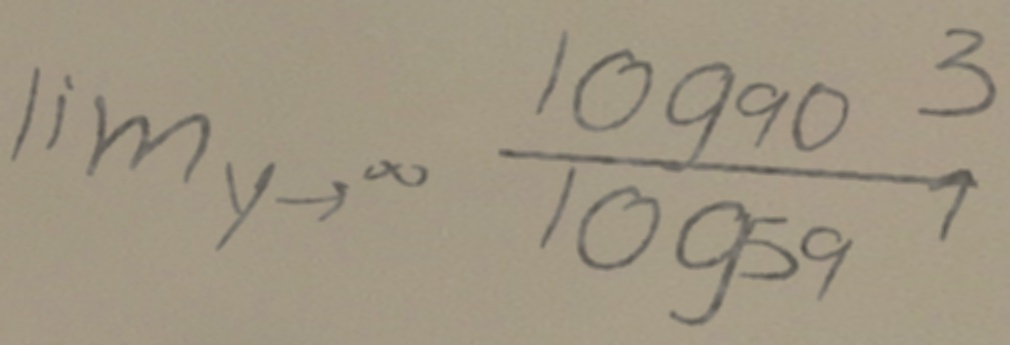 lim_{y→∞} \frac{log_{90} 3}{log_{59} 7}